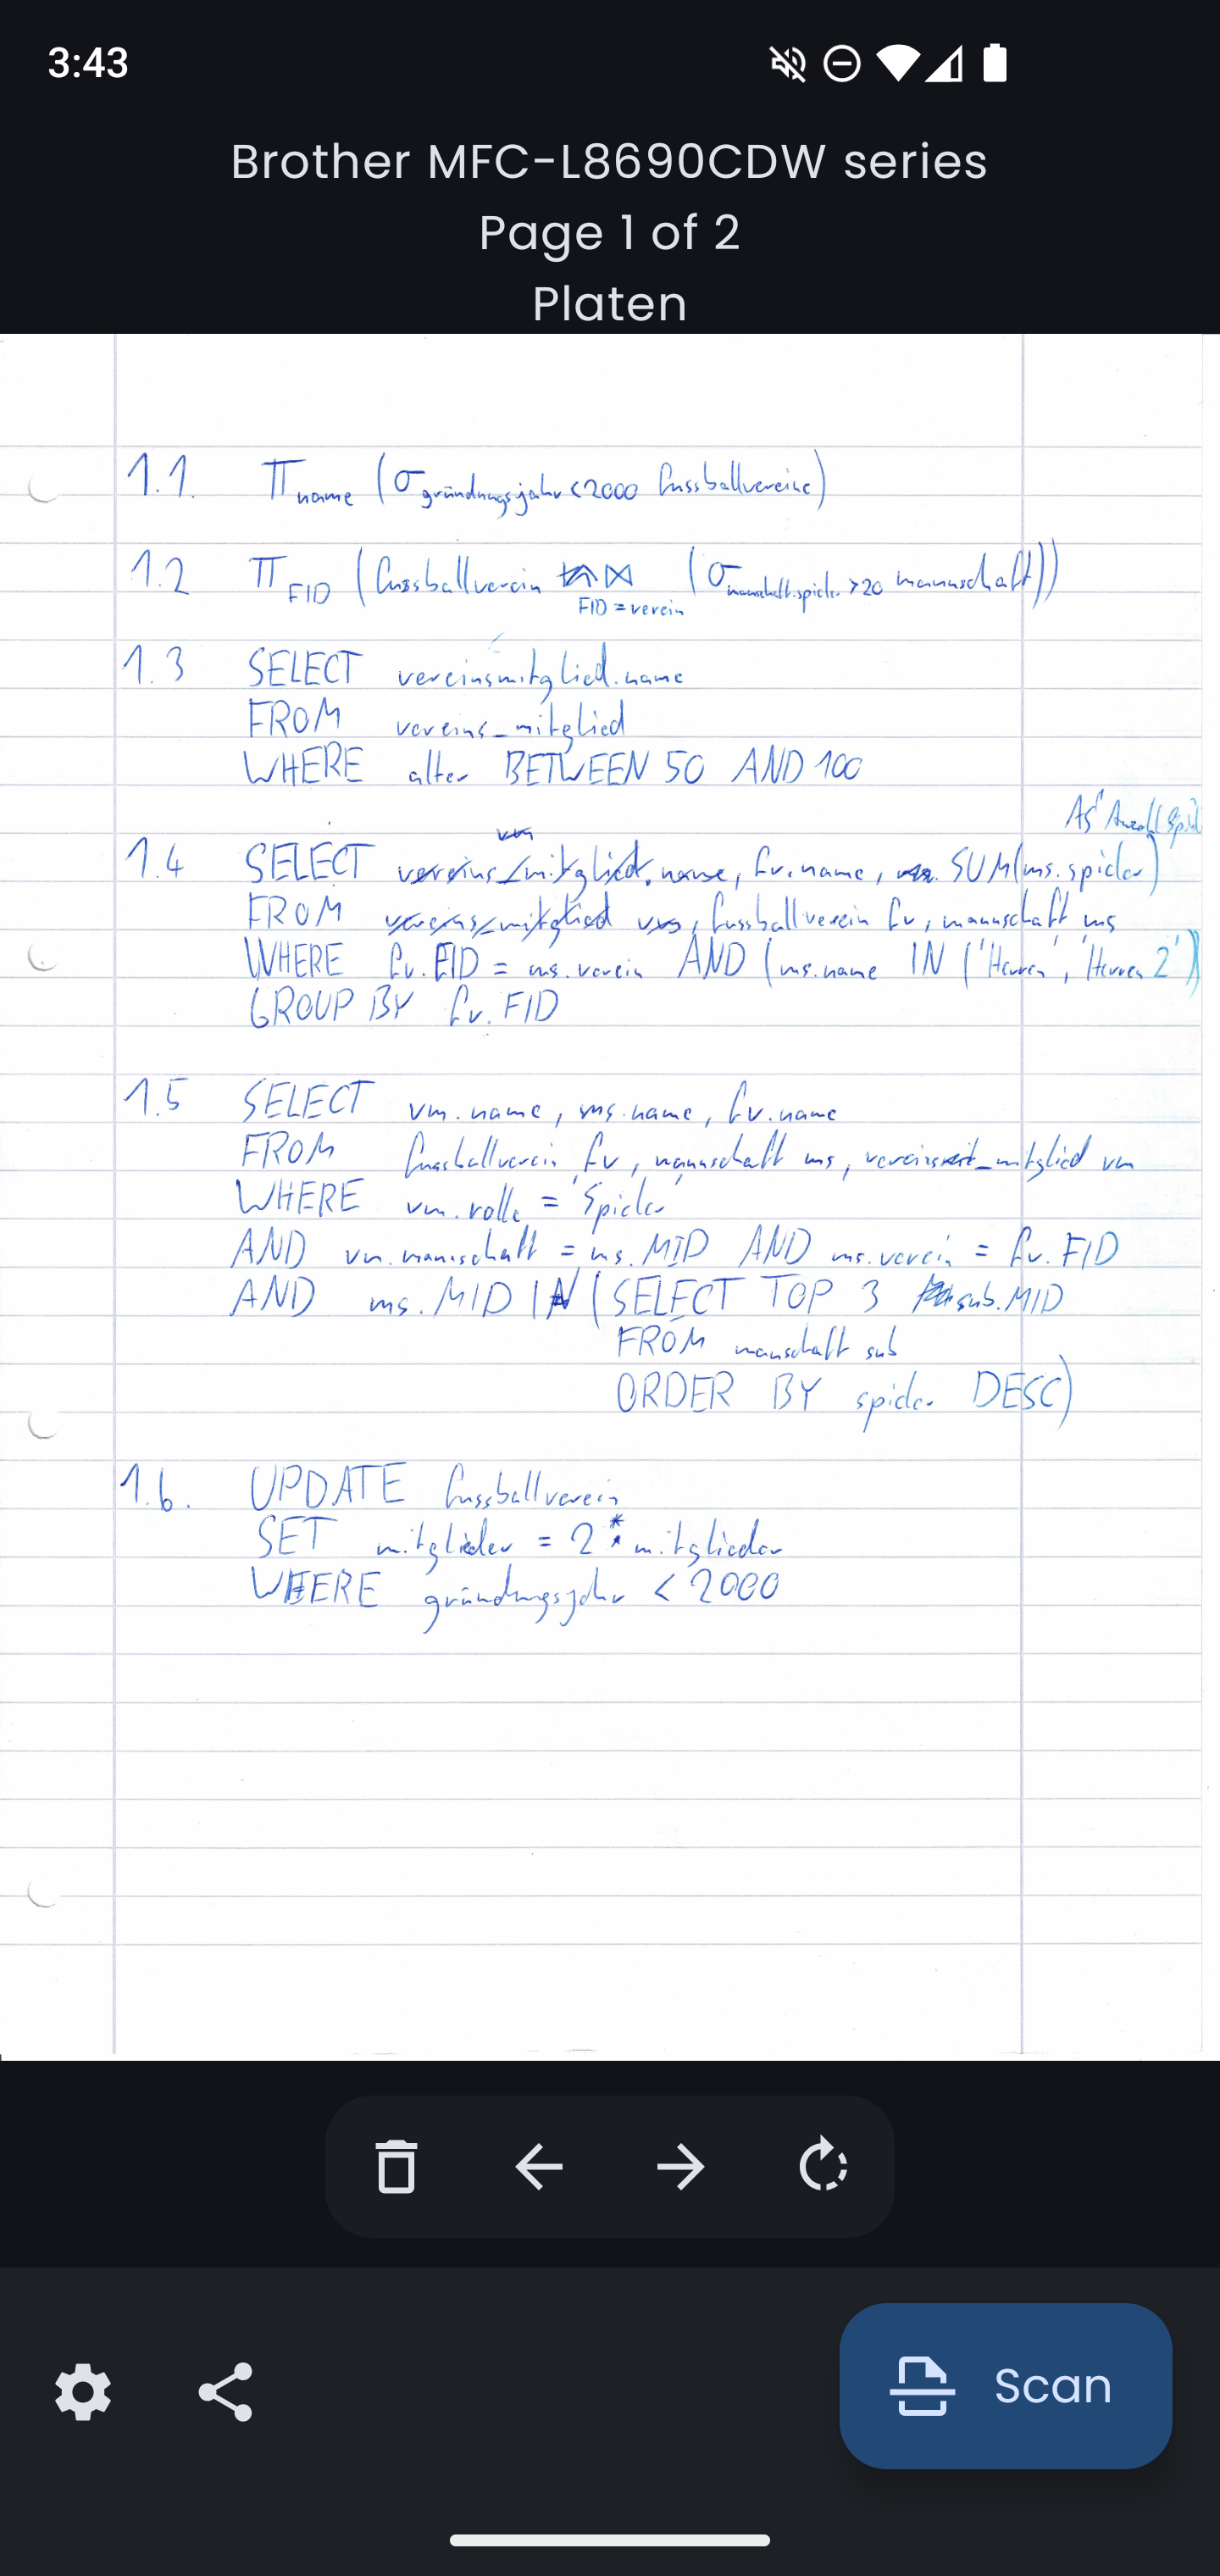 3:43
Brother MFC-L8690CDW series
Page 1 of 2
Platen
1.1. π name (σ gründungsjahr<2000 fussballvereine)
1.2 π FID (fussballverein ⋈ FID=verein (σ mannschaft.spieler>20 mannschaft))
1.3 SELECT vereinsmitglied.name
FROM vereins_mitglied
WHERE alter BETWEEN 50 AND 100
AS Anzahl Spiel
1.4 SELECT vereins_mitglied.name, fv.name, SUM(ms.spieler)
FROM vereins_mitglied vm, fussballverein fv, mannschaft ms
WHERE fv.FID = ms.verein AND (ms.name IN ('Herren', 'Herren 2')
GROUP BY fv.FID
1.5 SELECT vm.name, ms.name, fv.name
FROM fussballverein fv, mannschaft ms, vereins_mitglied vm
WHERE vm.rolle = 'Spieler'
AND vm.mannschaft = ms.MID AND ms.verein = fv.FID
AND ms.MID IN (SELECT TOP 3 sub.MID
FROM manschaft sub
ORDER BY spieler DESC)
1.6. UPDATE fussballverein
SET mitglieder = 2 * mitglieder
WHERE gründungsjahr < 2000
Scan